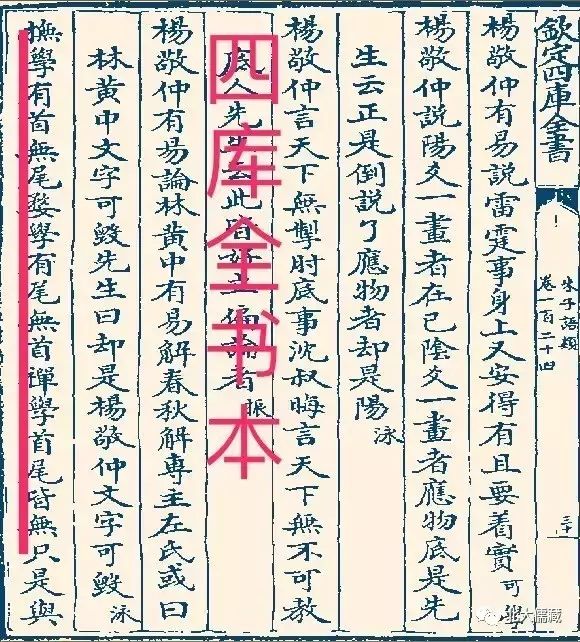 欽定四庫全書
朱子語類
卷一百二十四
三十
楊敬仲有易說雷霆事身上又安得有且要着實可學
楊敬仲說陽爻一畫者在已陰爻一畫者應物底是先
生云正是倒說了應物者却是陽泳
楊敬仲言天下無掣肘底事沈叔晦言天下無不可教
底人先生云此皆好立偏論者振
楊敬仲有易論林黄中有易解春秋解專主左氏或曰
林黄中文字可毀先生曰却是楊敬仲文字可毀泳
撫學有首無尾婺學有尾無首禪學首尾皆無只是與
四库全书本
北大儒藏